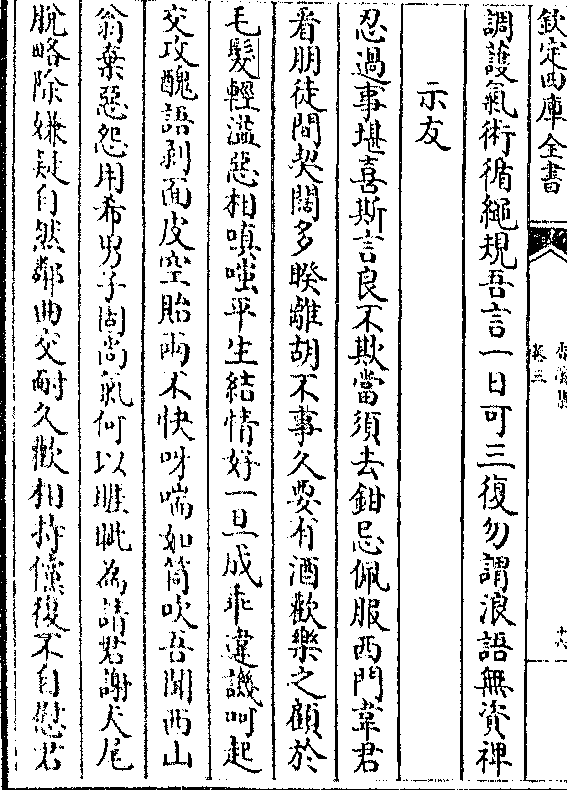 欽定四庫全書
卷三
調護氣術循繩規吾言一日可三復勿謂浪語無資裨
示友
忍過事堪喜斯言良不欺當須去鉗忌佩服西門韋君
看朋徒間契闊多睽離胡不事久要有酒歡樂之顧於
毛髮輕濫惡相嗔嗤平生結情好一旦成乖違譏呵起
交攻醜語剥面皮空貽兩不快呀喘如筒吹吾聞西山
翁棄惡怨用希男子固尚氣何以睚眦為請君謝犬尾
脫略除嫌疑自然鄰曲交耐久歡相持儻復不自慰君